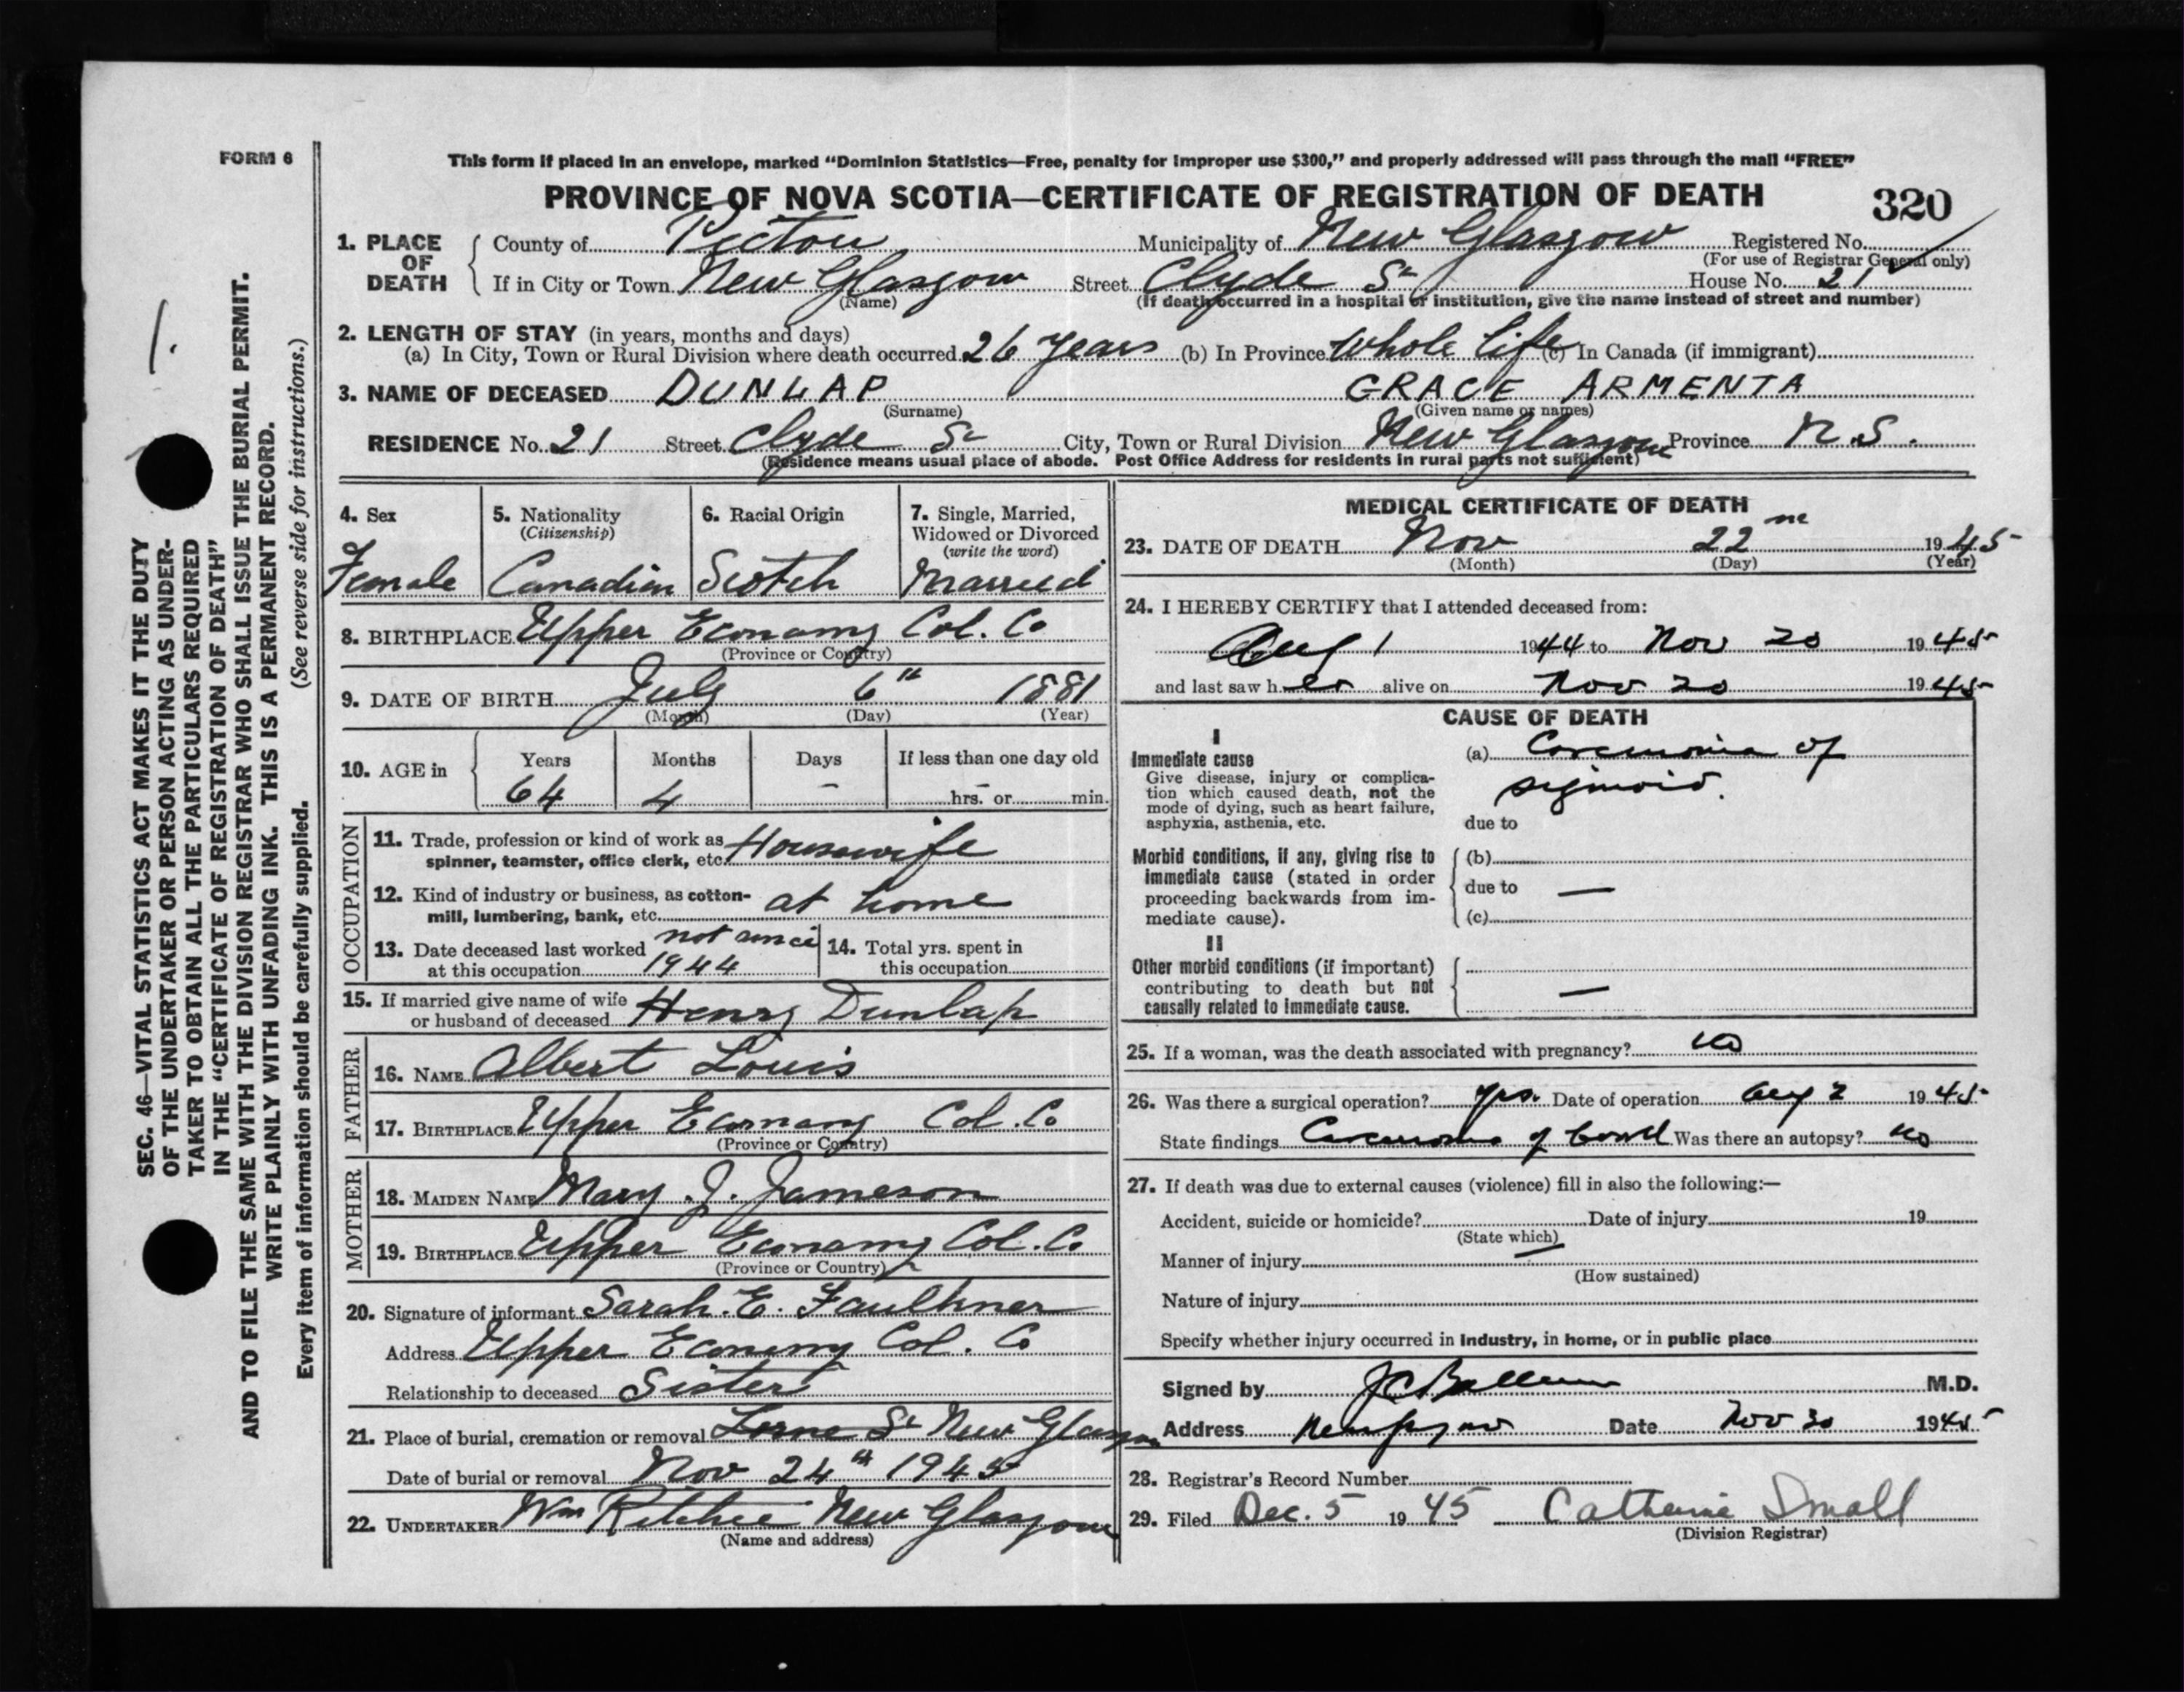 FORM 6
This form if placed in an envelope, marked “Dominion Statistics—Free, penalty for improper use $300,” and properly addressed will pass through the mail “FREE”
PROVINCE OF NOVA SCOTIA—CERTIFICATE OF REGISTRATION OF DEATH 320
1. PLACE OF DEATH
County of Pictou Municipality of New Glasgow Registered No.
(For use of Registrar General only)
If in City or Town New Glasgow Street Clyde St House No. 21
(Name) (If death occurred in a hospital or institution, give the name instead of street and number)
2. LENGTH OF STAY (in years, months and days)
(a) In City, Town or Rural Division where death occurred 26 years (b) In Province Whole Life (c) In Canada (if immigrant)
3. NAME OF DECEASED DUNLAP GRACE ARMENTA
(Surname) (Given name or names)
RESIDENCE No. 21 Street Clyde St City, Town or Rural Division New Glasgow Province N.S.
(Residence means usual place of abode. Post Office Address for residents in rural parts not sufficient)
4. Sex
Female
5. Nationality
(Citizenship)
Canadian
6. Racial Origin
Scotch
7. Single, Married,
Widowed or Divorced
(write the word)
Married
8. BIRTHPLACE Upper Economy Col. Co
(Province or Country)
9. DATE OF BIRTH July 6th 1881
(Month) (Day) (Year)
10. AGE in
Years Months Days If less than one day old
64 4 - hrs. or min.
OCCUPATION
11. Trade, profession or kind of work as
spinner, teamster, office clerk, etc. Housewife
12. Kind of industry or business, as cotton-
mill, lumbering, bank, etc. at home
13. Date deceased last worked not since
at this occupation 1944
14. Total yrs. spent in
this occupation
15. If married give name of wife
or husband of deceased Henry Dunlap
FATHER
16. NAME Albert Louis
17. BIRTHPLACE Upper Economy Col. Co
(Province or Country)
MOTHER
18. MAIDEN NAME Mary J. Jameson
19. BIRTHPLACE Upper Economy Col. Co
(Province or Country)
20. Signature of informant Sarah. E. Faulkner
Address Upper Economy Col. Co
Relationship to deceased Sister
21. Place of burial, cremation or removal Lorne St New Glasgow
Date of burial or removal Nov 24th 1945
22. UNDERTAKER Wm Ritchie New Glasgow
(Name and address)
MEDICAL CERTIFICATE OF DEATH
23. DATE OF DEATH Nov 22 1945
(Month) (Day) (Year)
24. I HEREBY CERTIFY that I attended deceased from:
Aug 1 1944 to Nov 20 1945
and last saw her alive on Nov 20 1945
CAUSE OF DEATH
I
Immediate cause
Give disease, injury or complica-
tion which caused death, not the
mode of dying, such as heart failure,
asphyxia, asthenia, etc.
(a) Carcinoma of
sigmoid.
due to
Morbid conditions, if any, giving rise to
immediate cause (stated in order
proceeding backwards from im-
mediate cause).
(b)
due to —
(c)
II
Other morbid conditions (if important)
contributing to death but not
causally related to immediate cause.
—
25. If a woman, was the death associated with pregnancy? no
26. Was there a surgical operation? yes. Date of operation Aug 2 1945
State findings Carcinoma of bowel Was there an autopsy? no
27. If death was due to external causes (violence) fill in also the following:—
Accident, suicide or homicide? Date of injury 19
(State which)
Manner of injury —
(How sustained)
Nature of injury
Specify whether injury occurred in industry, in home, or in public place
Signed by M.D.
Address New Glasgow Date Nov 30 1945
28. Registrar's Record Number
29. Filed Dec. 5 1945 Catherine Small
(Division Registrar)
1.
SEC. 46—VITAL STATISTICS ACT MAKES IT THE DUTY
OF THE UNDERTAKER OR PERSON ACTING AS UNDER-
TAKER TO OBTAIN ALL THE PARTICULARS REQUIRED
IN THE “CERTIFICATE OF REGISTRATION OF DEATH”
AND TO FILE THE SAME WITH THE DIVISION REGISTRAR WHO SHALL ISSUE THE BURIAL PERMIT.
WRITE PLAINLY WITH UNFADING INK. THIS IS A PERMANENT RECORD.
Every item of information should be carefully supplied. (See reverse side for instructions.)